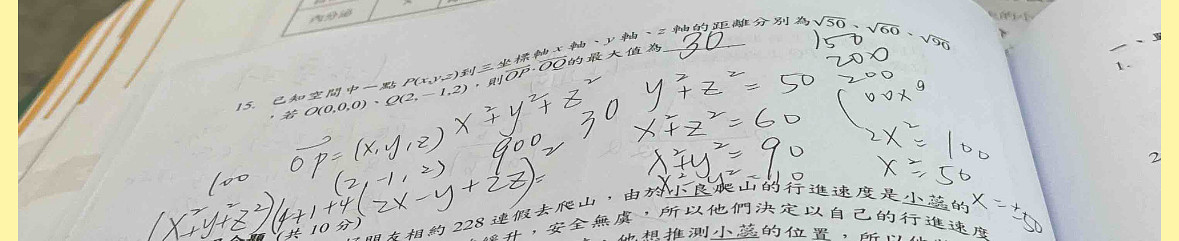 內分泌
15. 已知空間中一點 P(x,y,z)到三坐標軸 x 軸、y 軸、z 軸的距離分別為√50、√60、√90
，若 O(0,0,0)、Q(2,−1,2)，則OP·OQ的最大值為 30
150
200
200
y²+z²=50
x²+y²+z²
x²+z²=60
30
OP=(x,y,z)
900
2x²=100
x²+y²=90
(2,-1,2)
100
x²=50
x²-y²=10
(x²+y²+z²)(4+1+4)
(2x-y+2z)²
x=±√50
(共 10 分)
朋友相約 228 連假去爬山，由於小良爬山的行進速度是小蕊的
升，安全無虞，所以他們決定以自己的行進速度
他想推測小蕊的位置，所以
一、
1.
2